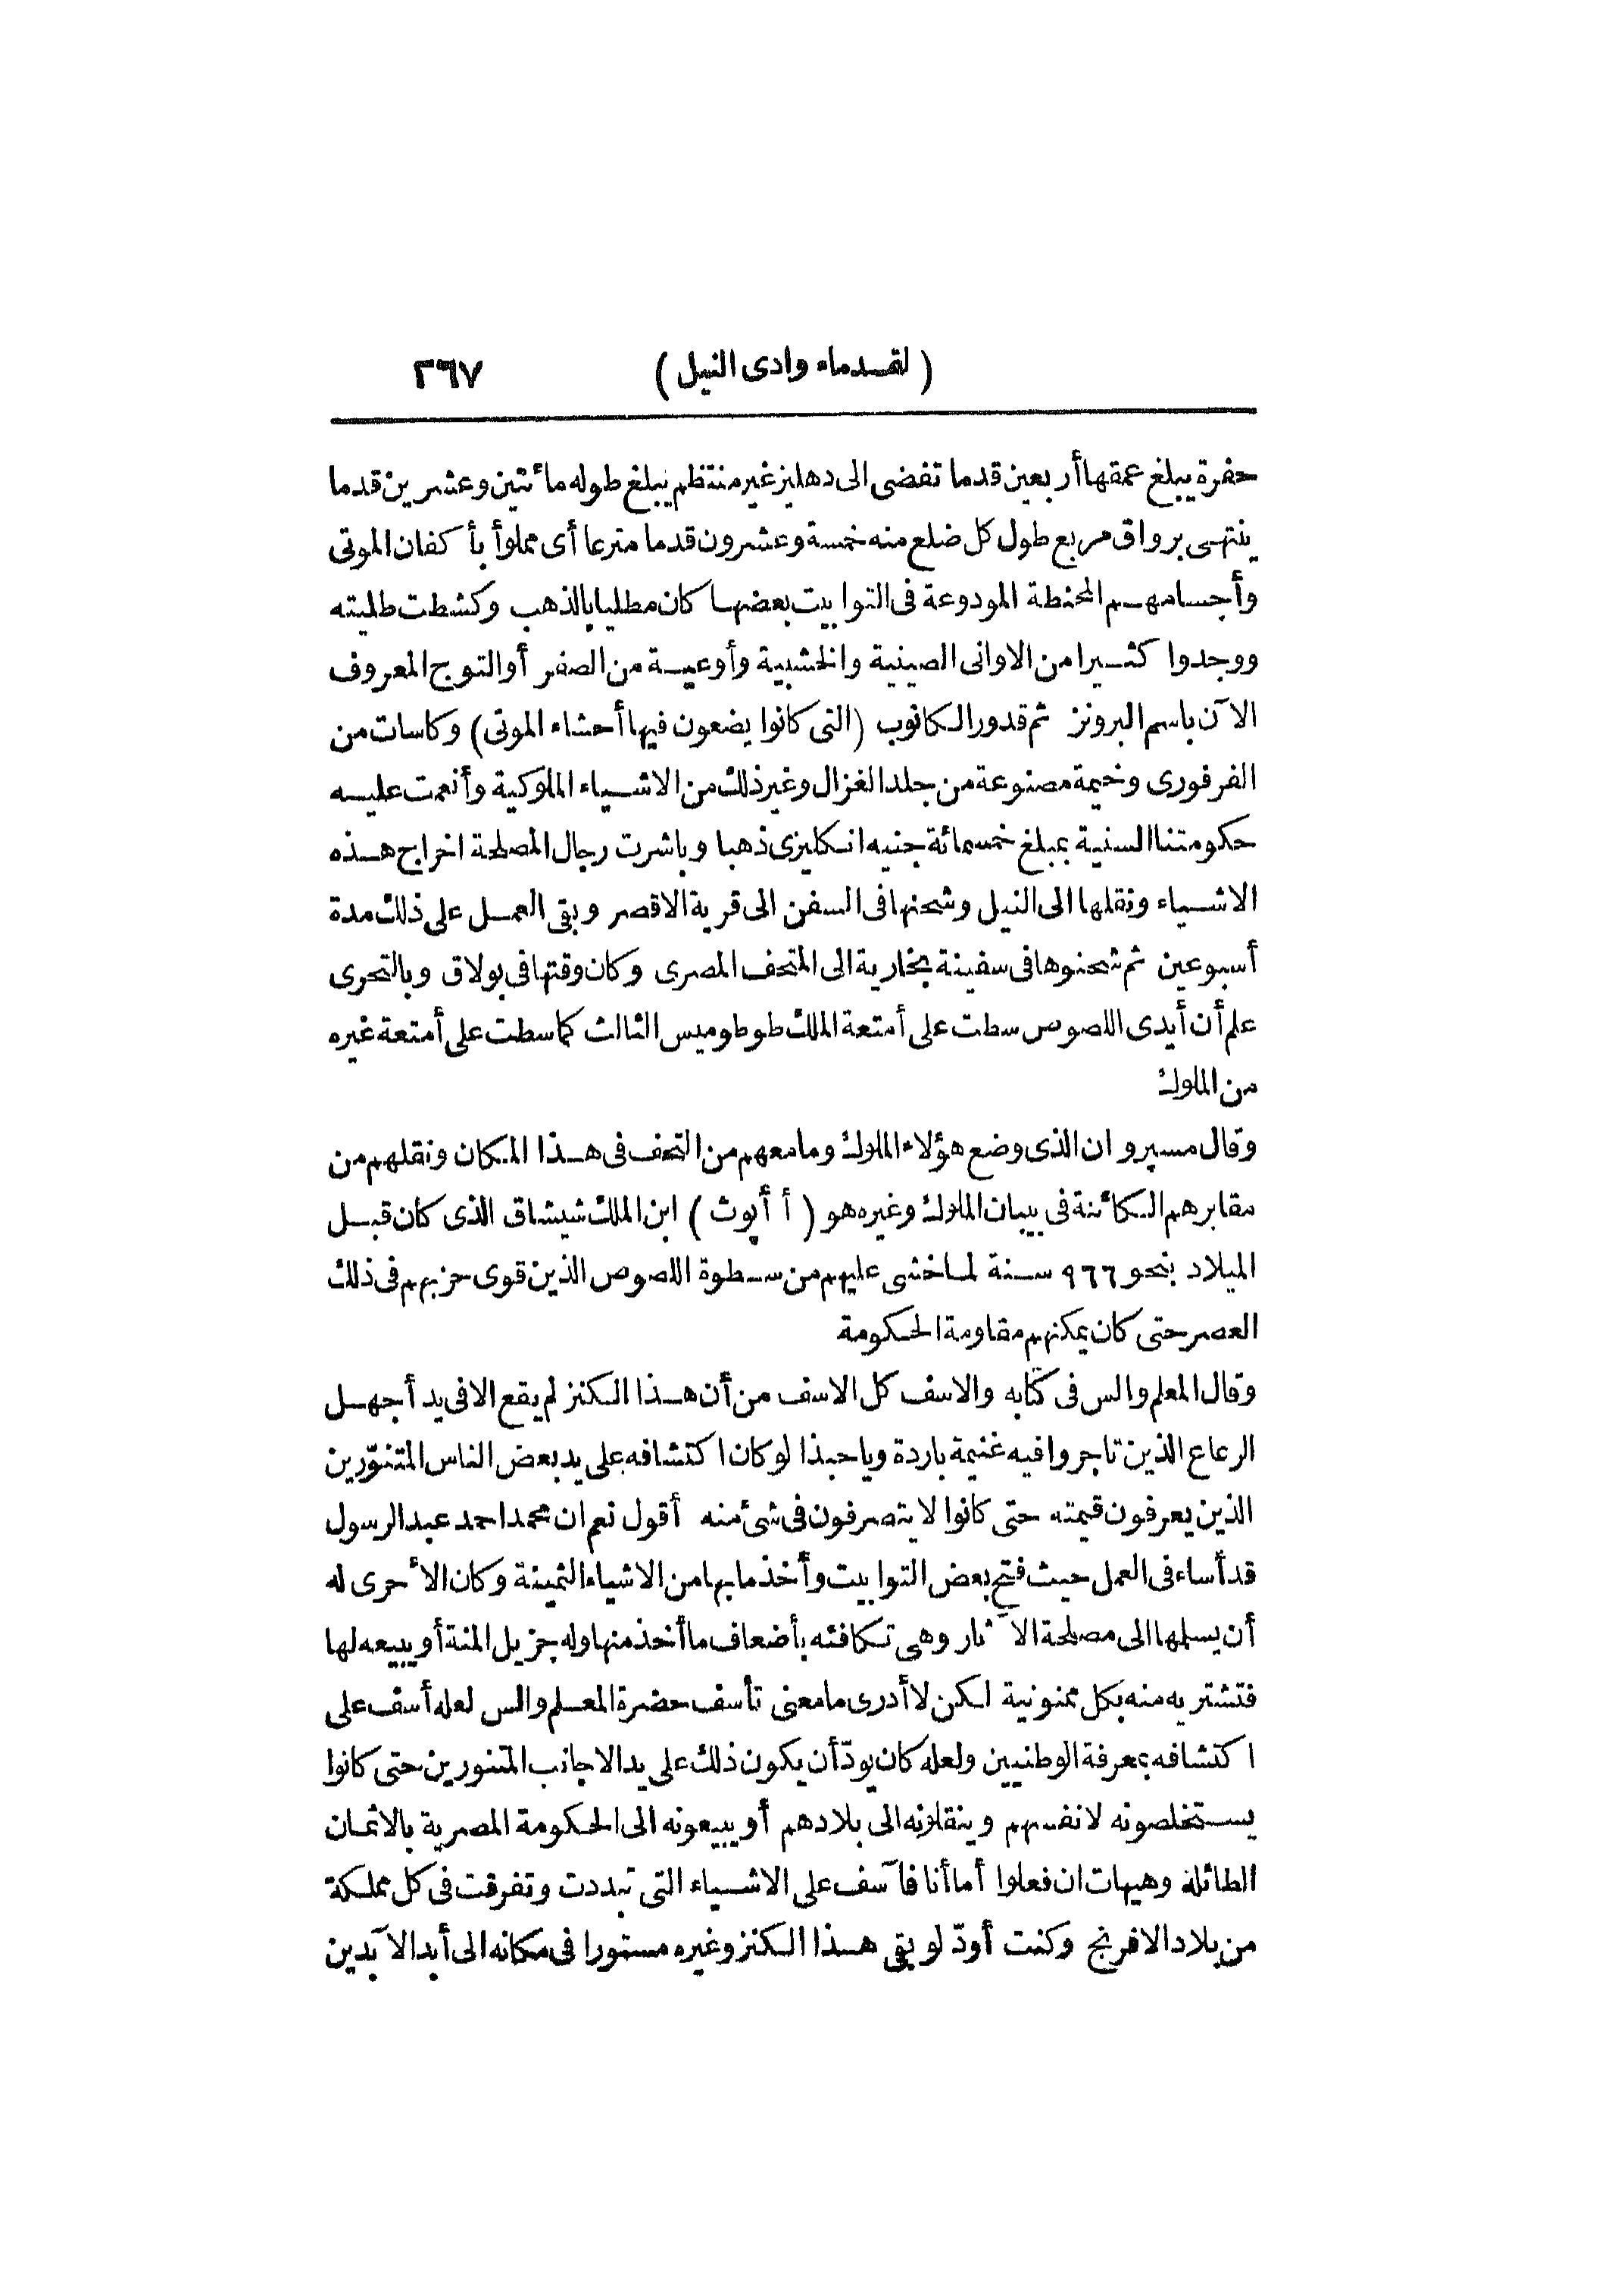 ( لقدماء وادى النيل ) ٢٦٧
حفرة يبلغ عمقها أربعين قدما تفضى الى دهليز غير منتظم يبلغ طوله مائتين وعشرين قدما
ينتهى برواق مربع طول كل ضلع منه خمسة وعشرون قدما مترعا أى مملوأ بأكفان الموتى
وأجسامهم المحنطة المودوعة فى التوابيت بعضها كان مطليا بالذهب وكشطت طليته
ووجدوا كثيرا من الاوانى الصينية والخشبية وأوعية من الصفر أو التوج المعروف
الآن باسم البرونز ثم قدور الكانوب (التى كانوا يضعون فيها أحشاء الموتى) وكاسات من
الفرفورى وخيمة مصنوعة من جلد الغزال وغير ذلك من الاشياء الملوكية وأنعمت عليه
حكومتنا السنية بمبلغ خمسمائة جنيه انكليزى ذهبا وباشرت رجال المصلحة اخراج هذه
الاشياء ونقلها الى النيل وشحنها فى السفن الى قرية الاقصر وبقى العمل على ذلك مدة
أسبوعين ثم شحنوها فى سفينة بخارية الى المتحف المصرى وكان وقتها فى بولاق وبالتحرى
علم أن أيدى اللصوص سطت على أمتعة الملك طوطوميس الثالث كما سطت على أمتعة غيره
من الملوك
وقال مسپرو ان الذى وضع هؤلاء الملوك وما معهم من التحف فى هذا المكان ونقلهم من
مقابرهم الكائنة فى بيبان الملوك وغيره هو ( أ أپوث ) ابن الملك شيشاق الذى كان قبل
الميلاد بنحو ٩٦٦ سنة لما خشى عليهم من سطوة اللصوص الذين قوى حزبهم فى ذلك
العصر حتى كان يمكنهم مقاومة الحكومة
وقال المعلم والس فى كتابه والاسف كل الاسف من أن هذا الكنز لم يقع الا فى يد أجهل
الرعاع الذين تاجروا فيه غنيمة باردة ويا حبذا لو كان اكتشافه على يد بعض الناس المتنوّرين
الذين يعرفون قيمته حتى كانوا لا يتصرفون فى شئ منه أقول نعم ان محمد احمد عبد الرسول
قد أساء فى العمل حيث فتح بعض التوابيت وأخذ ما بها من الاشياء الثمينة وكان الأحرى له
أن يسلمها الى مصلحة الآثار وهى تكافئه بأضعاف ما أخذ منها وله جزيل المنة أو يبيعه لها
فتشتريه منه بكل ممنونية لكن لا أدرى ما معنى تأسف حضرة المعلم والس لعله أسف على
اكتشافه بمعرفة الوطنيين ولعله كان يودّ أن يكون ذلك على يد الاجانب المتنورين حتى كانوا
يستخلصونه لانفسهم وينقلونه الى بلادهم أو يبيعونه الى الحكومة المصرية بالاثمان
الطائلة وهيهات ان فعلوا أما أنا فآسف على الاشياء التى تبددت وتفرقت فى كل مملكة
من بلاد الافرنج وكنت أودّ لو بقى هذا الكنز وغيره مستورا فى مكانه الى أبد الآبدين